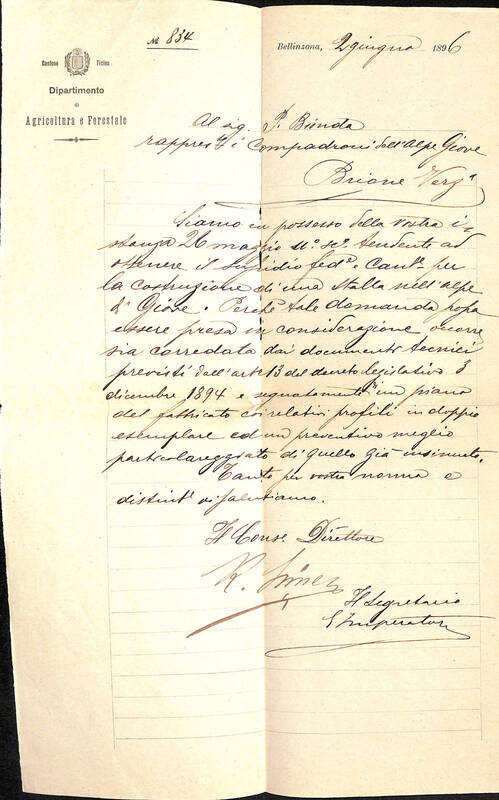 № 834
Bellinzona, 2 giugno 1896
Cantone Ticino
Dipartimento
di
Agricoltura e Forestale
Al sig. P. Bionda
rappres.te i Compadroni dell'Alpe Giove
Brione Verz.a
Siamo in possesso della vostra i-
stanza 26 maggio u.o sc.o tendente ad
ottenere il sussidio fed.e e cant.e per
la costruzione di una stalla nell'alpe
di Giove. Perchè tale domanda possa
essere presa in considerazione occorre
sia corredata dai documenti tecnici
previsti dall'art.e 13 del decreto legislativo 3
dicembre 1894 e segnatamente un piano
del fabbricato coi relativi profili in doppio
esemplare ed un preventivo meglio
particolareggiato di quello già insinuato.
Tanto per vostra norma e
distint.e vi salutiamo.
Il Cons.e Direttore
R. Simen
Il Segretario
Imperatori